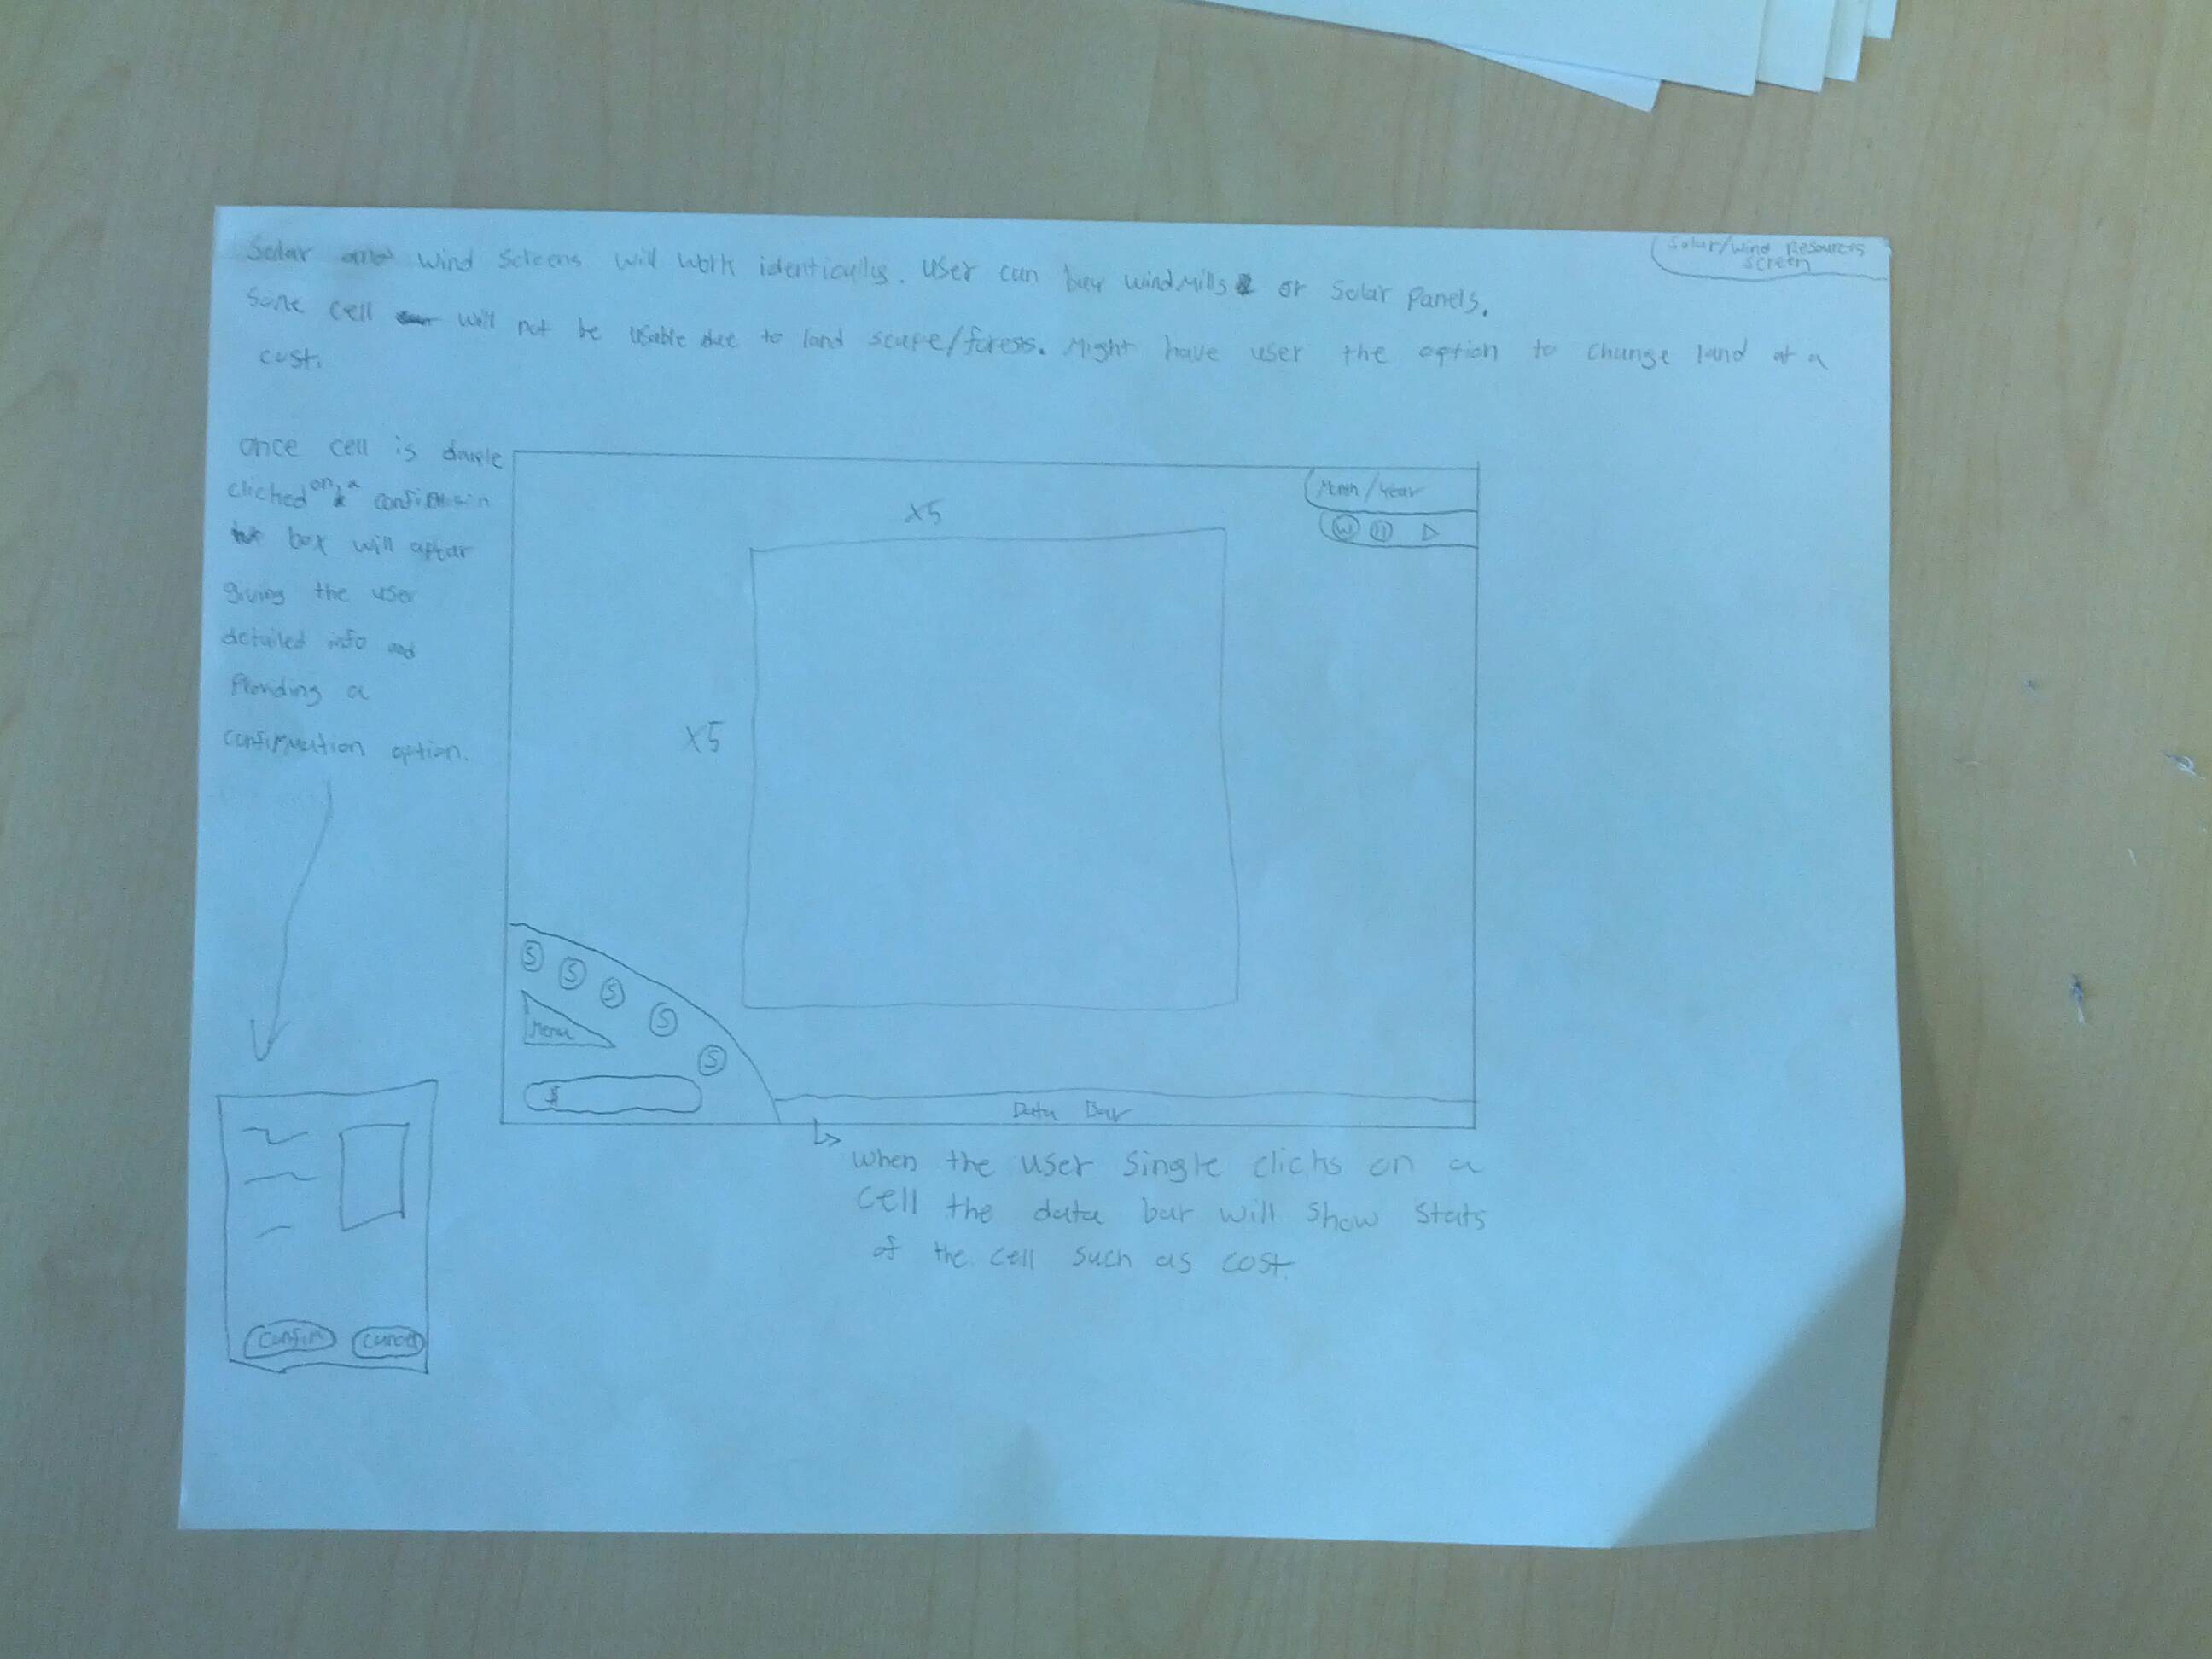 Solar/Wind Resources
Screen
Solar and Wind Screens will work identically. User can buy windmills or Solar Panels.
Some cell will not be usable due to land scape/forests. Might have user the option to change land at a
cost.
once cell is double
clicked on, a
box will
giving the user
detailed info and
Providing a
confirmation option.
X5
X5
Month/Year
W II ▷
S S S S S
Menu
$
Data Bar
When the user single clicks on a
cell the data bar will show stats
of the cell such as cost.
Confirm Cancel